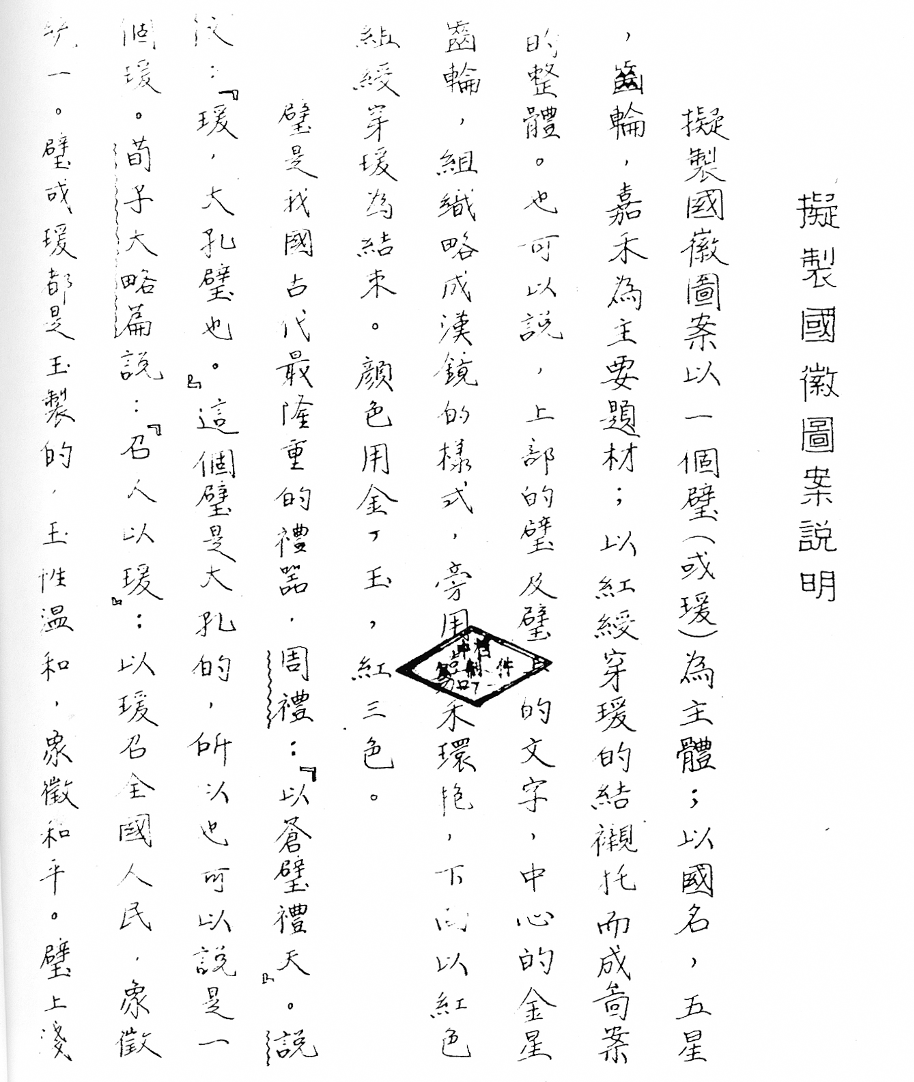 擬製國徽圖案說明
擬製國徽圖案以一個璧(或瑗)為主體；以國名，五星
，齒輪，嘉禾為主要題材；以紅綬穿瑗的結襯托而成圖案
的整體。也可以說，上部的璧及璧上的文字，中心的金星
齒輪，組織略成漢鏡的樣式，旁用嘉禾環抱，下面以紅色
組綬穿瑗為結束。顏色用金，玉，紅三色。
璧是我國古代最隆重的禮器．周禮：『以蒼璧禮天』。說
文：『瑗，大孔璧也。』這個璧是大孔的，所以也可以說是一
個瑗。荀子大略篇說：『召人以瑗』：以瑗召全國人民．象徵
統一。璧或瑗都是玉製的．玉性溫和，象徵和平。璧上淺